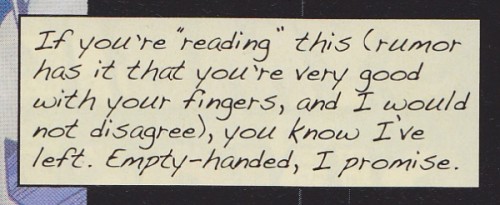 If you're "reading" this (rumor
has it that you're very good
with your fingers, and I would
not disagree), you know I've
left. Empty-handed, I promise.